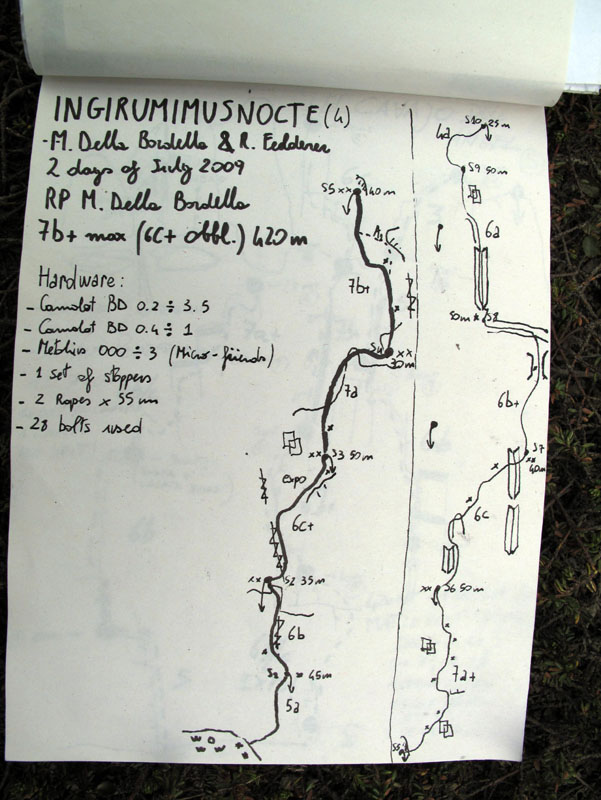 INGIRUMIMUSNOCTE (4)
- M. Della Bordella & R. Fedderer
2 days of July 2009
RP M. Della Bordella
7b+ max (6c+ obbl.) 420 m
Hardware:
- Camolot BD 0.2 ÷ 3.5
- Camolot BD 0.4 ÷ 1
- Metolius 000 ÷ 3 (Micro-friends)
- 1 set of stoppers
- 2 Ropes x 55 m
- 28 bolts used
S5 xx 40 m
7b+
S4 xx
30 m
7a
xx S3 50 m
expo
6c+
xx S2 35 m
6b
S1 x 45 m
5a
S10 25 m
4a
S9 50 m
6a
50 m x S8
6b+
S7
xx
40 m
6c
xx S6 50 m
7a+
S5